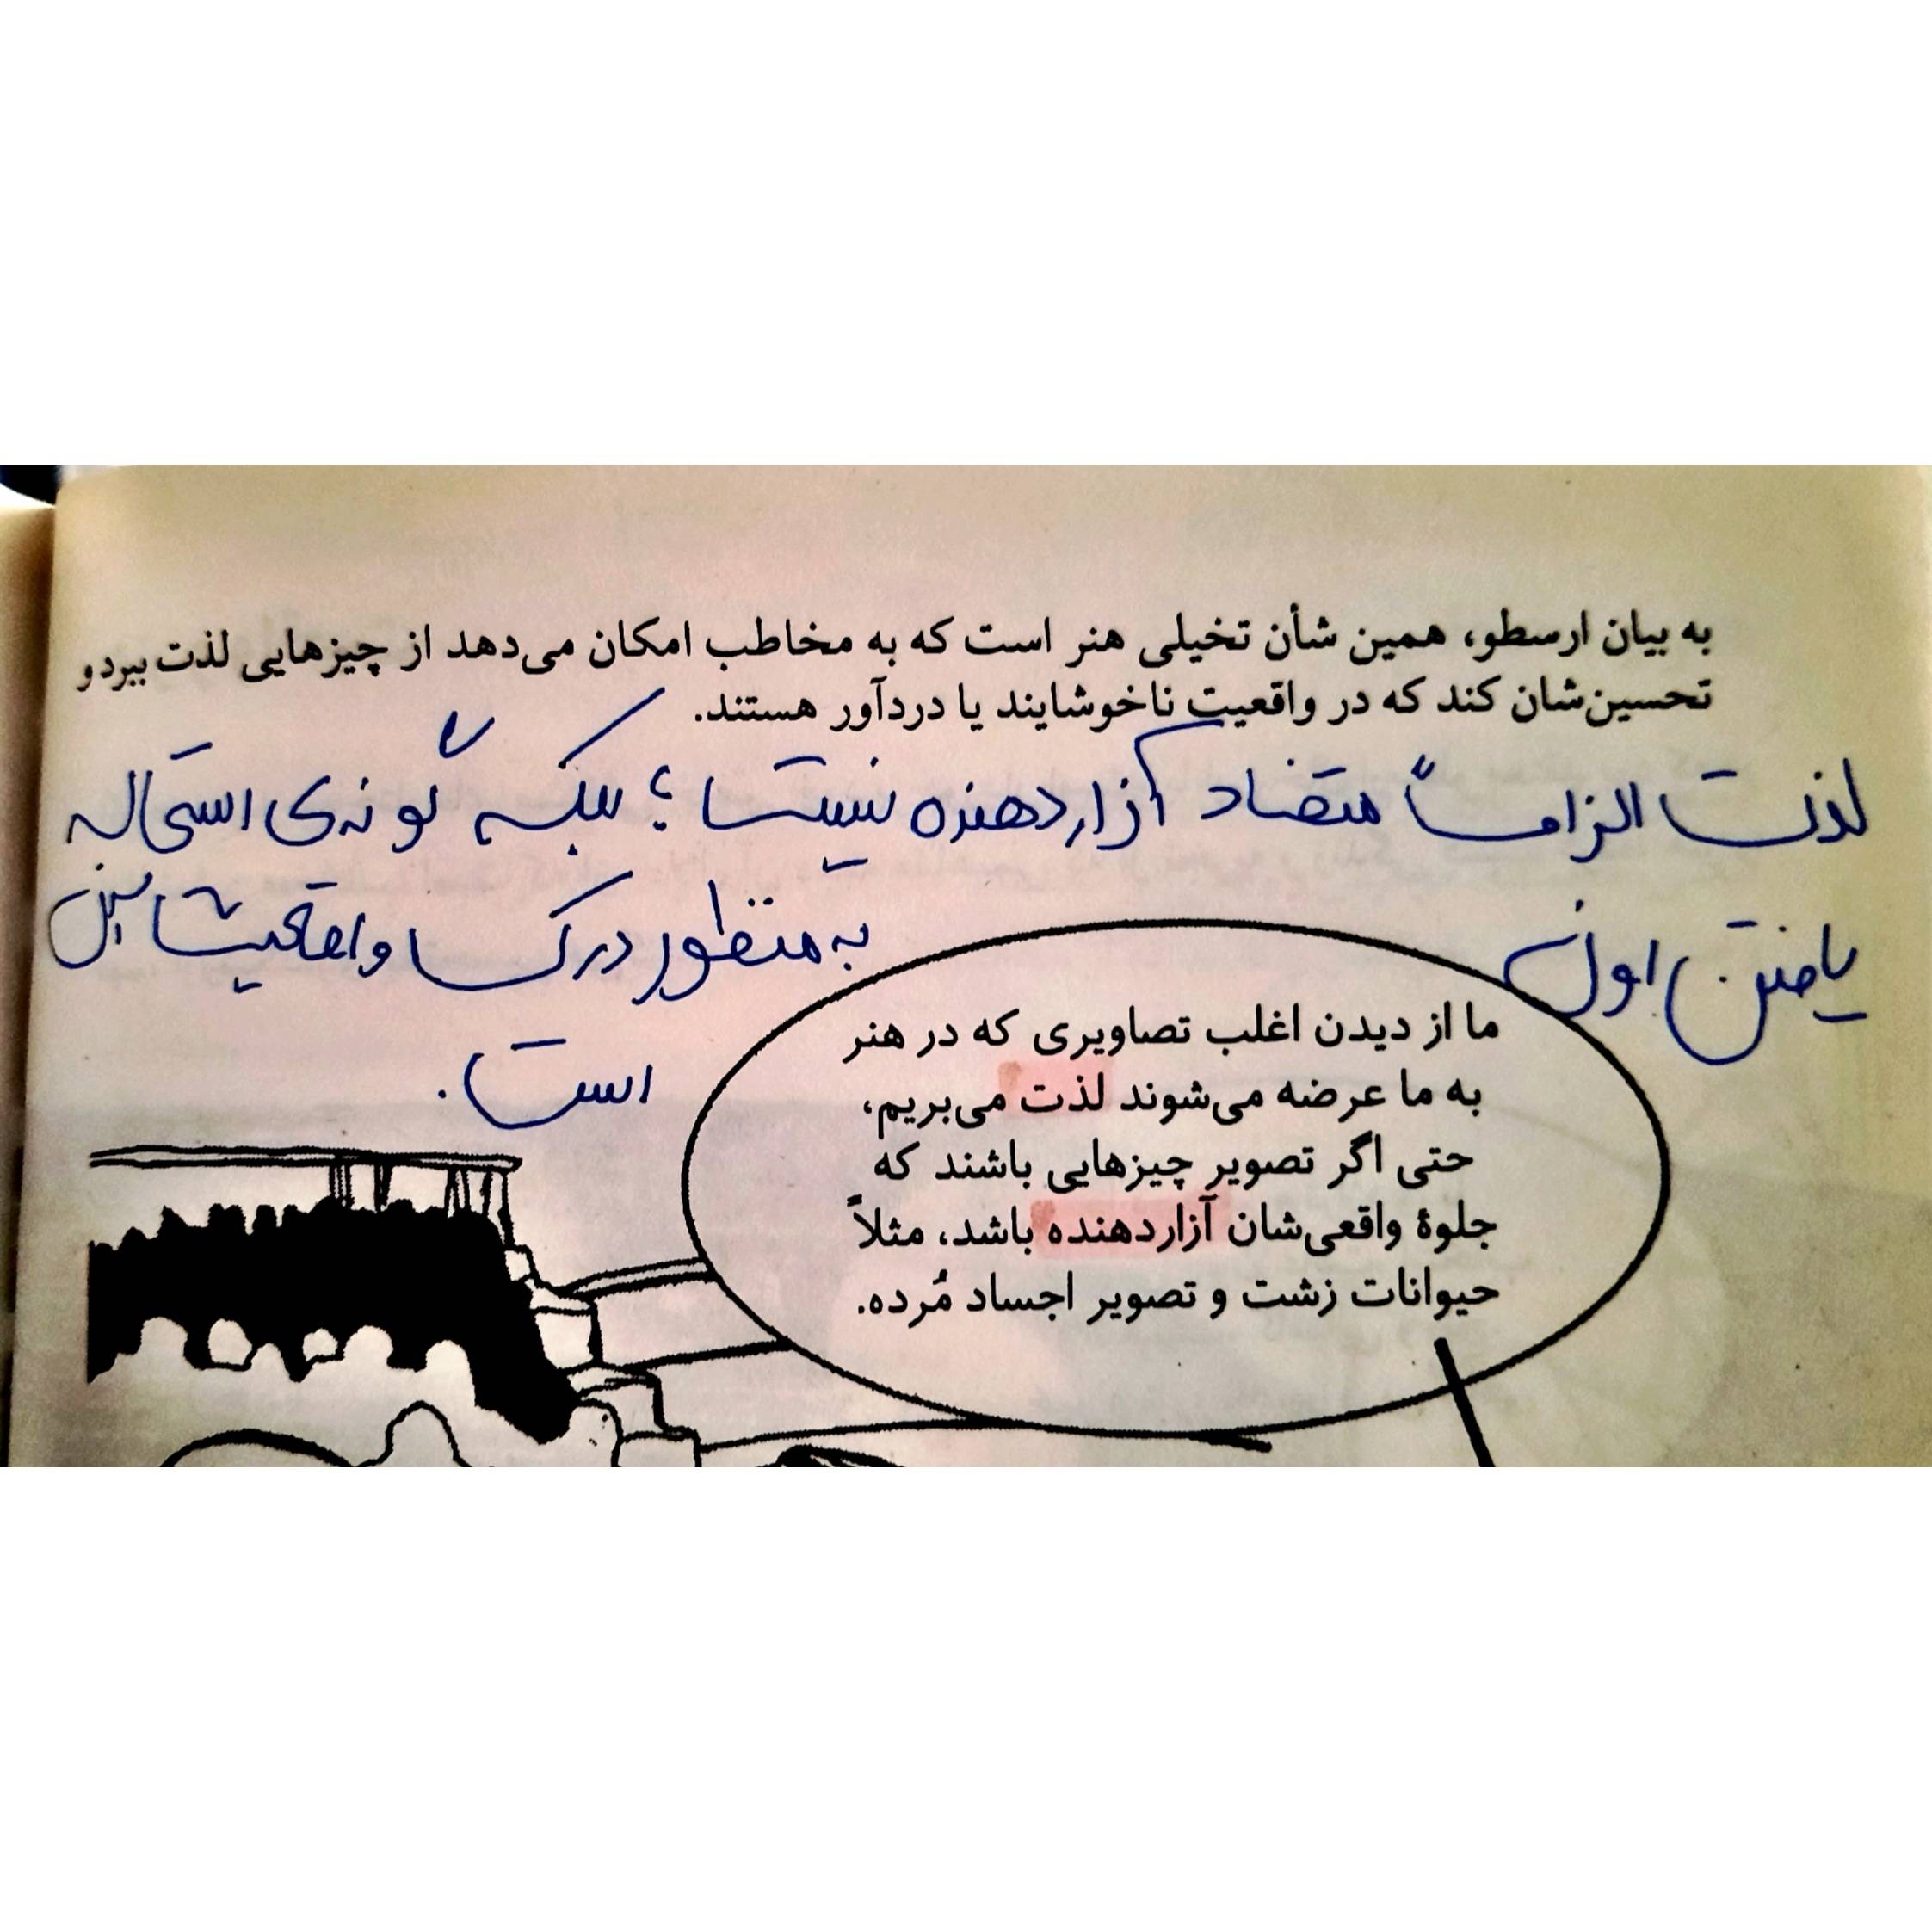 به بیان ارسطو، همین شأن تخیلی هنر است که به مخاطب امکان می‌دهد از چیزهایی لذت ببرد و
تحسین‌شان کند که در واقعیت ناخوشایند یا دردآور هستند.
لذت الزاماً متضاد آزاردهنده نیست؛ بلکه گونه‌ی استحاله
یافتن اون به منظور درک واقعیت این
است.
ما از دیدن اغلب تصاویری که در هنر
به ما عرضه می‌شوند لذت می‌بریم،
حتی اگر تصویر چیزهایی باشند که
جلوهٔ واقعی‌شان آزاردهنده باشد، مثلاً
حیوانات زشت و تصویر اجساد مُرده.